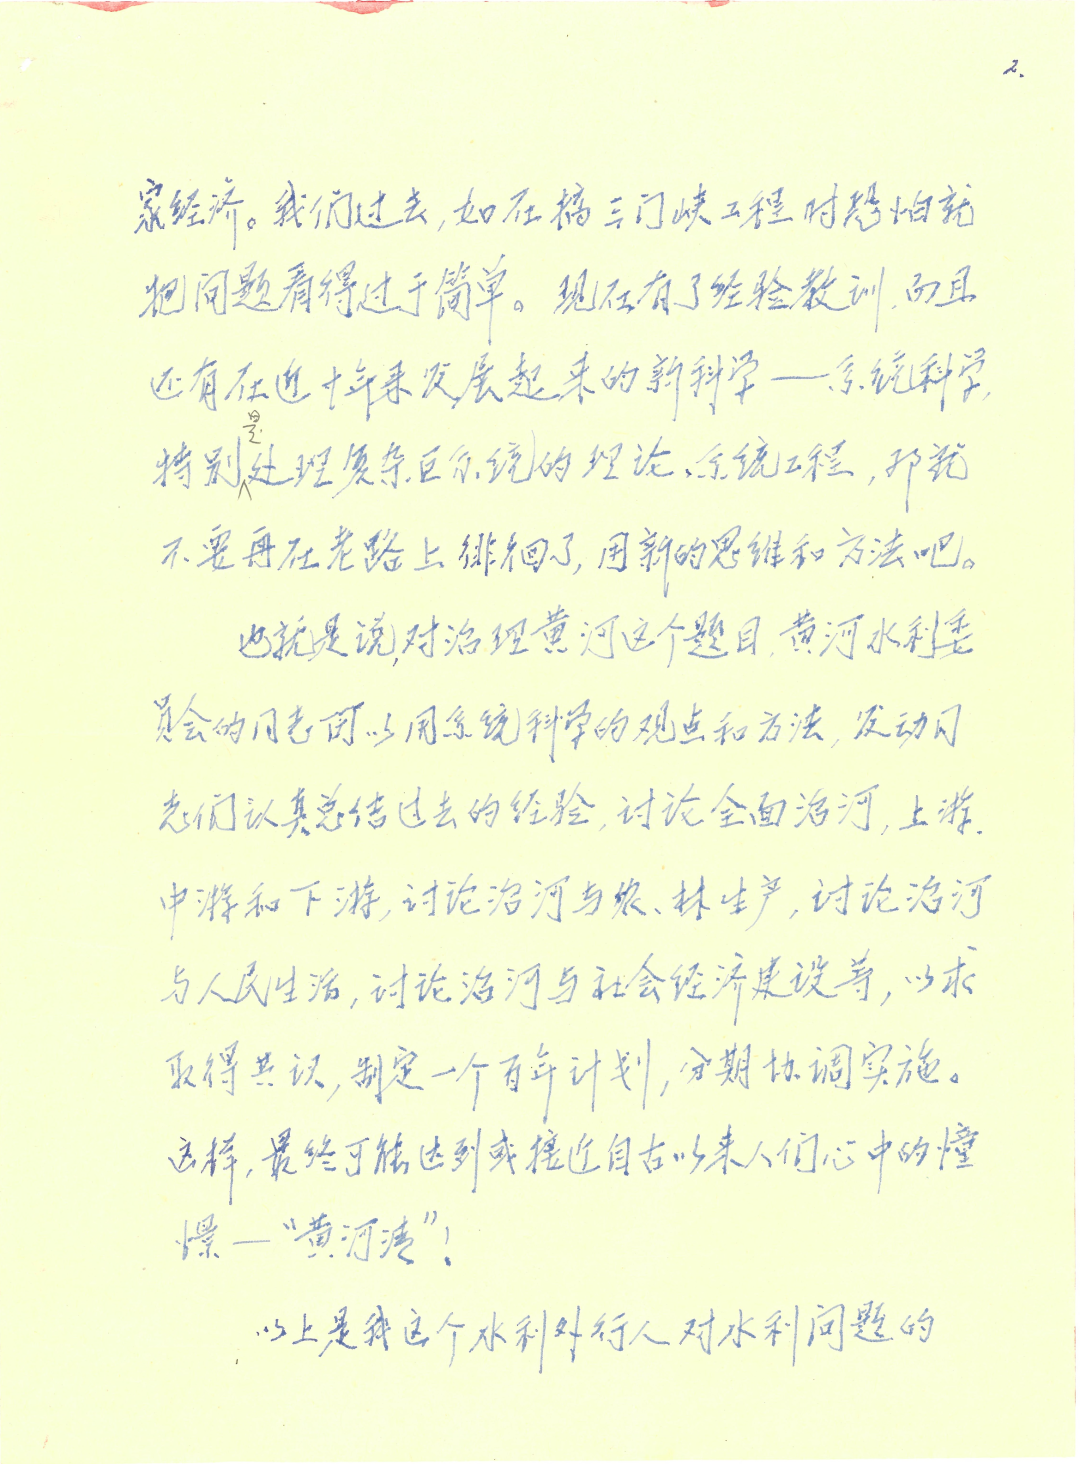 2.
家经济。我们过去，如在搞三门峡工程时恐怕就
把问题看得过于简单。现在有了经验教训，而且
还有在近十年来发展起来的新科学——系统科学，
特别是处理复杂巨系统的理论、系统工程，那就
不要再在老路上徘徊了，用新的思维和方法吧。
也就是说，对治理黄河这个题目，黄河水利委
员会的同志可以用系统科学的观点和方法，发动同
志们认真总结过去的经验，讨论全面治河，上游、
中游和下游，讨论治河与农、林生产，讨论治河
与人民生活，讨论治河与社会经济建设等，以求
取得共识，制定一个百年计划，分期协调实施。
这样，最终可能达到或接近自古以来人们心中的憧
憬——“黄河清”！
以上是我这个水利外行人对水利问题的